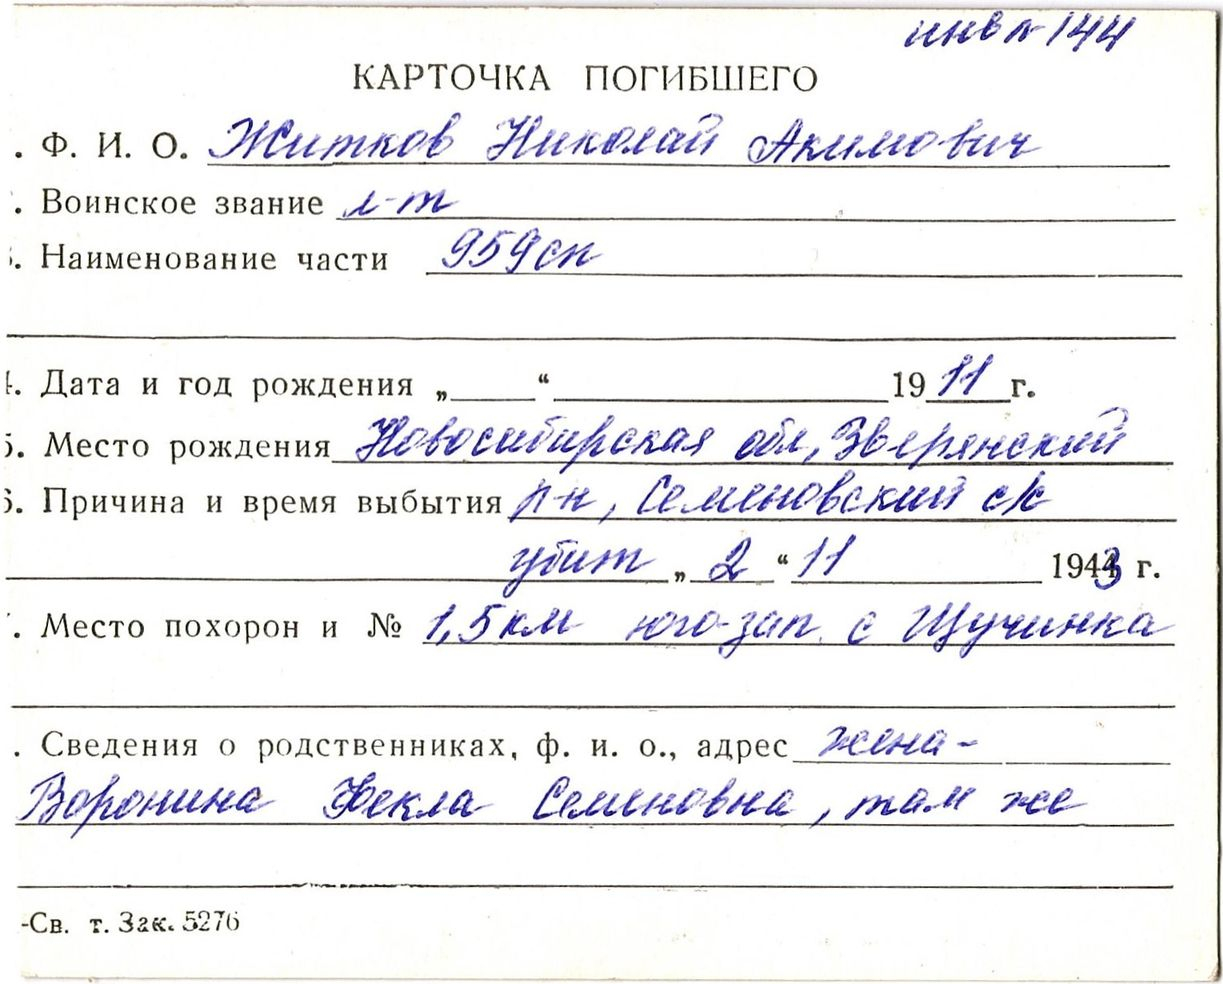 инв № 144
КАРТОЧКА ПОГИБШЕГО
. Ф. И. О. Житков Николай Акимович
. Воинское звание л-т
. Наименование части 959сп
4. Дата и год рождения „ “ 1911 г.
5. Место рождения Новосибирская обл, Зверянский
6. Причина и время выбытия р-н, Семеновский с/с
убит „ 2 “ 11 1943 г.
. Место похорон и № 1,5км юго-зап. с Щучинка
. Сведения о родственниках, ф. и. о., адрес жена-
Воронина Фекла Семеновна, там же
-Св. т. Зак. 5276